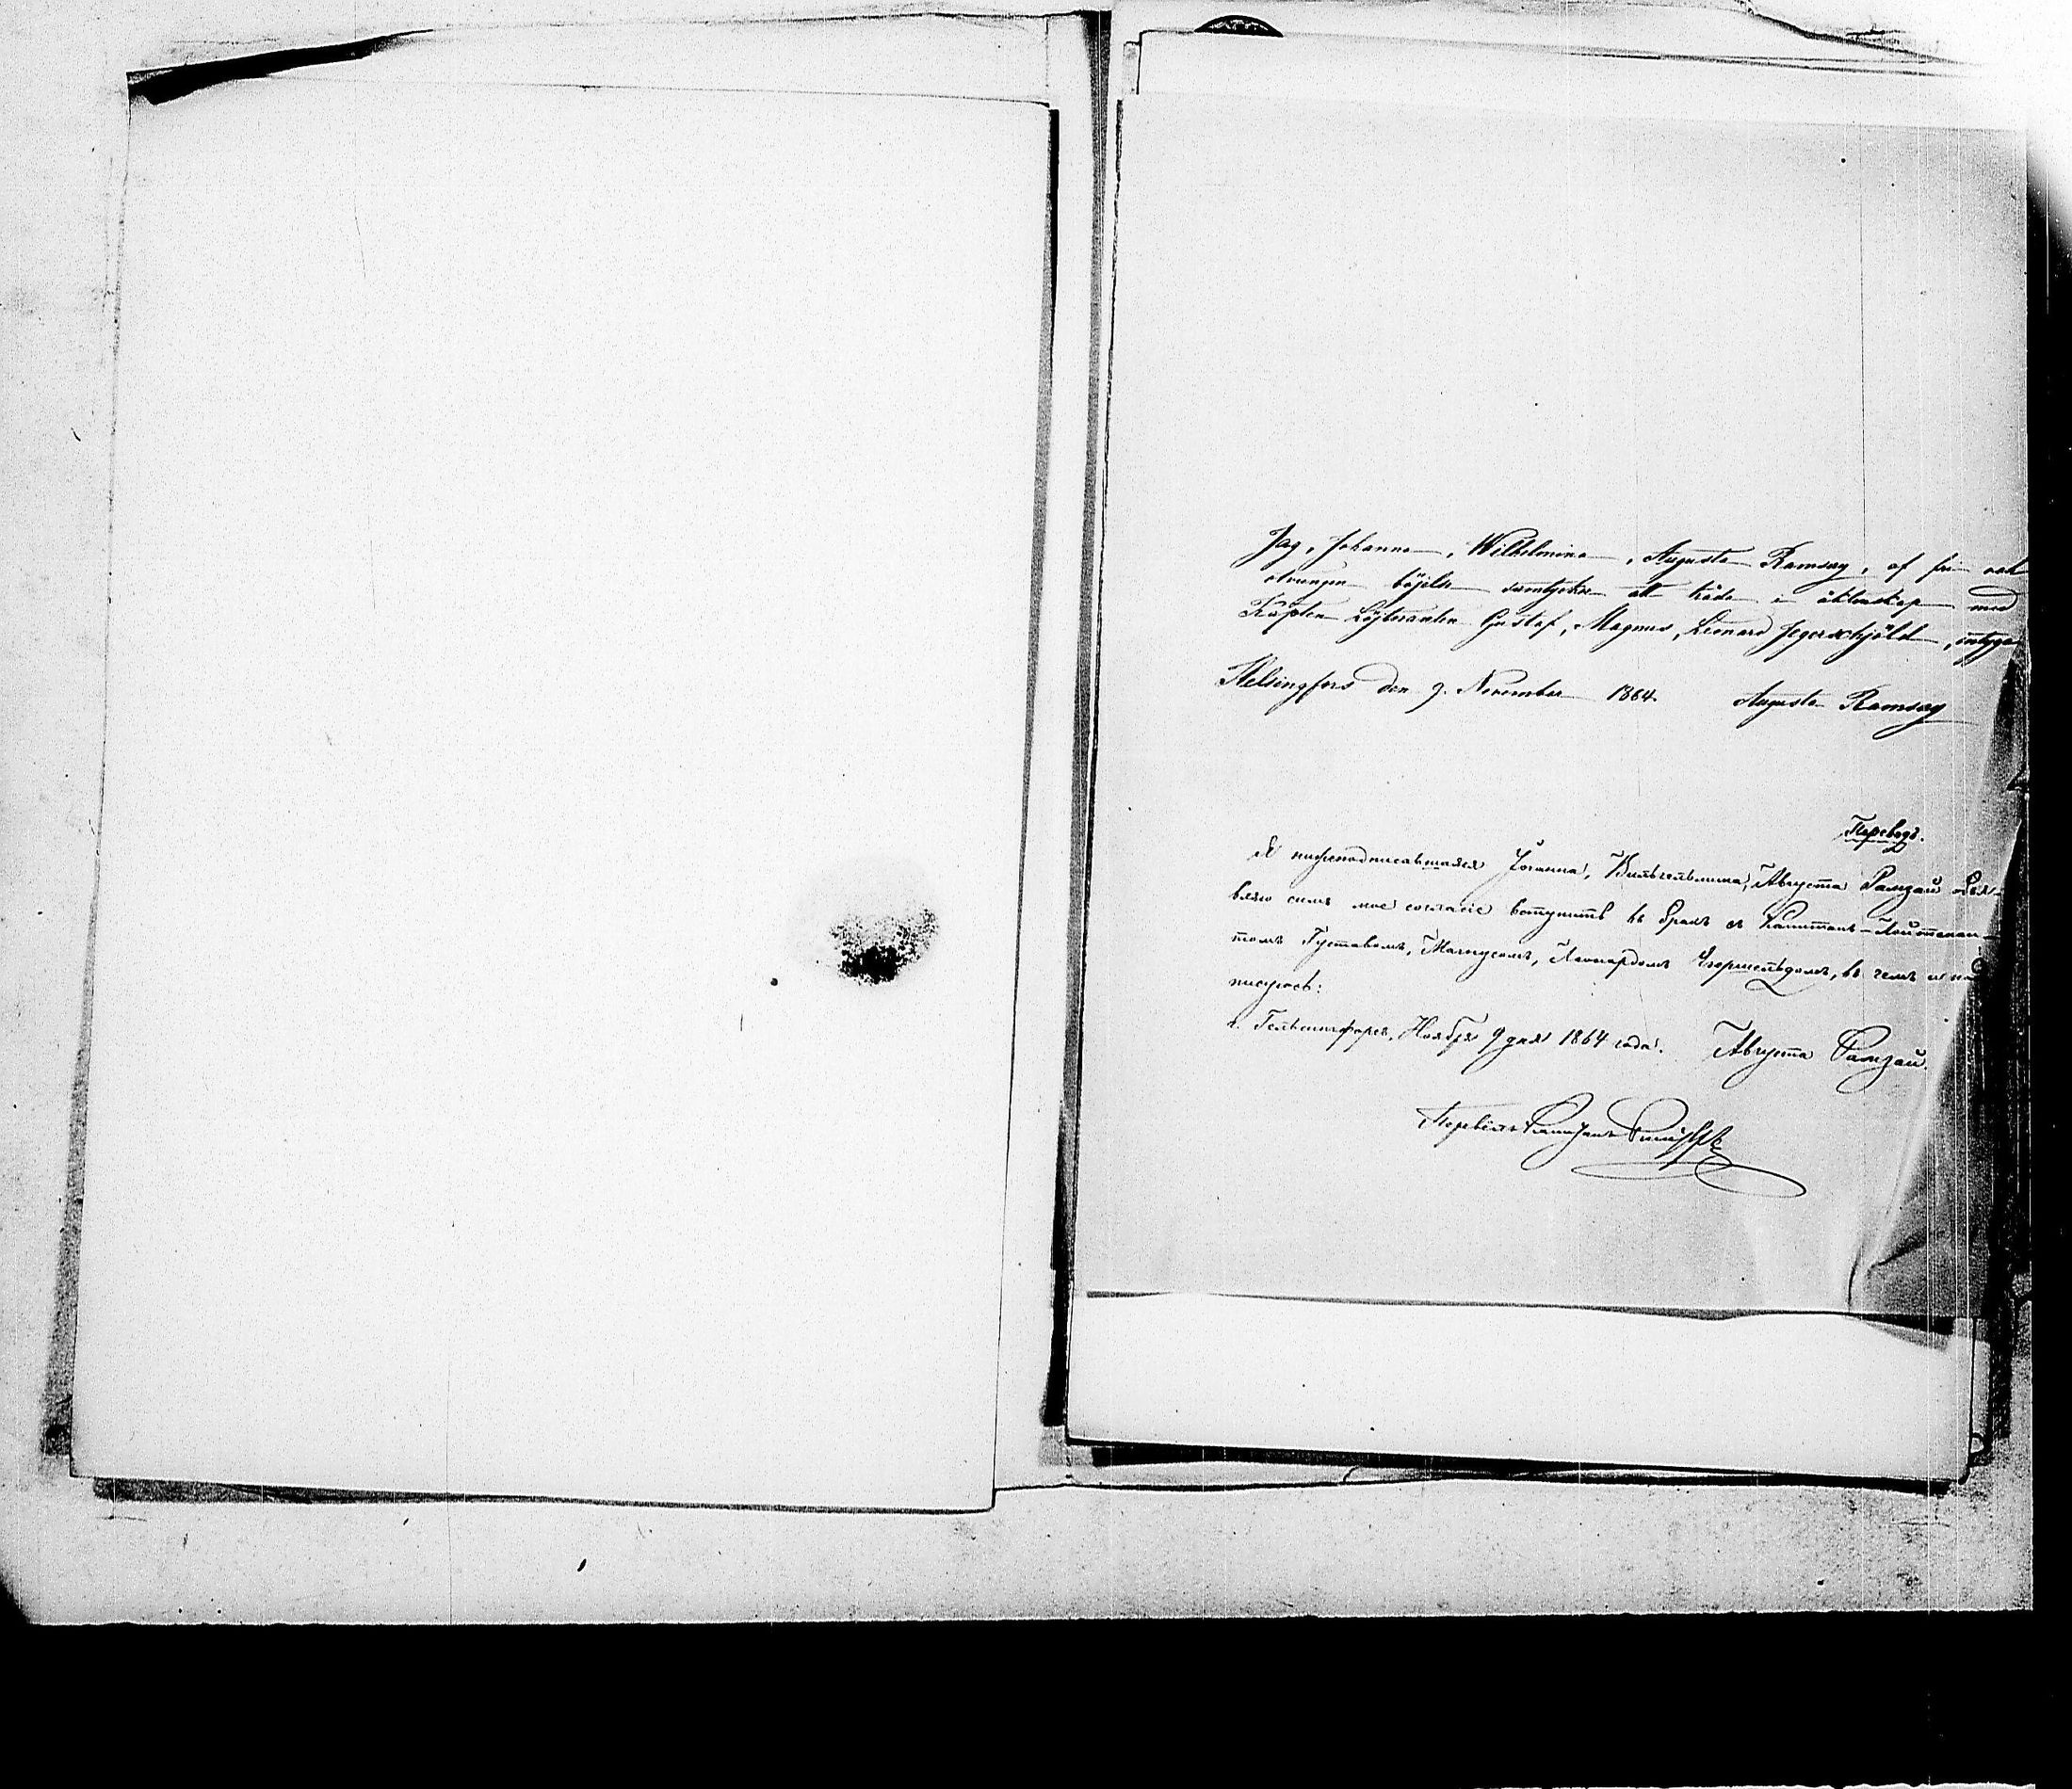 Jag, Johanna, Wilhelmina, Augusta Ramsay, af fri och
otvungen böjelse samtycker att träda i äktenskap med
Kapten Löjtnanten Gustaf, Magnus, Leonard Jegerschjöld, intygar
Helsingfors den 9. November 1864. Augusta Ramsay
Переводъ.
Я нижеподписавшаяся Іоганна, Вильгельмина, Августа Рамзай объя-
вляю симъ мое согласіе вступить въ бракъ съ Капитанъ-Лейтенан-
томъ Густавомъ, Магнусомъ, Леонардомъ Егершельдомъ, въ чемъ и под
писуюсь:
г. Гельсингфорсъ, Ноября 9 дня 1864 года. Августа Рамзай.
Перевелъ